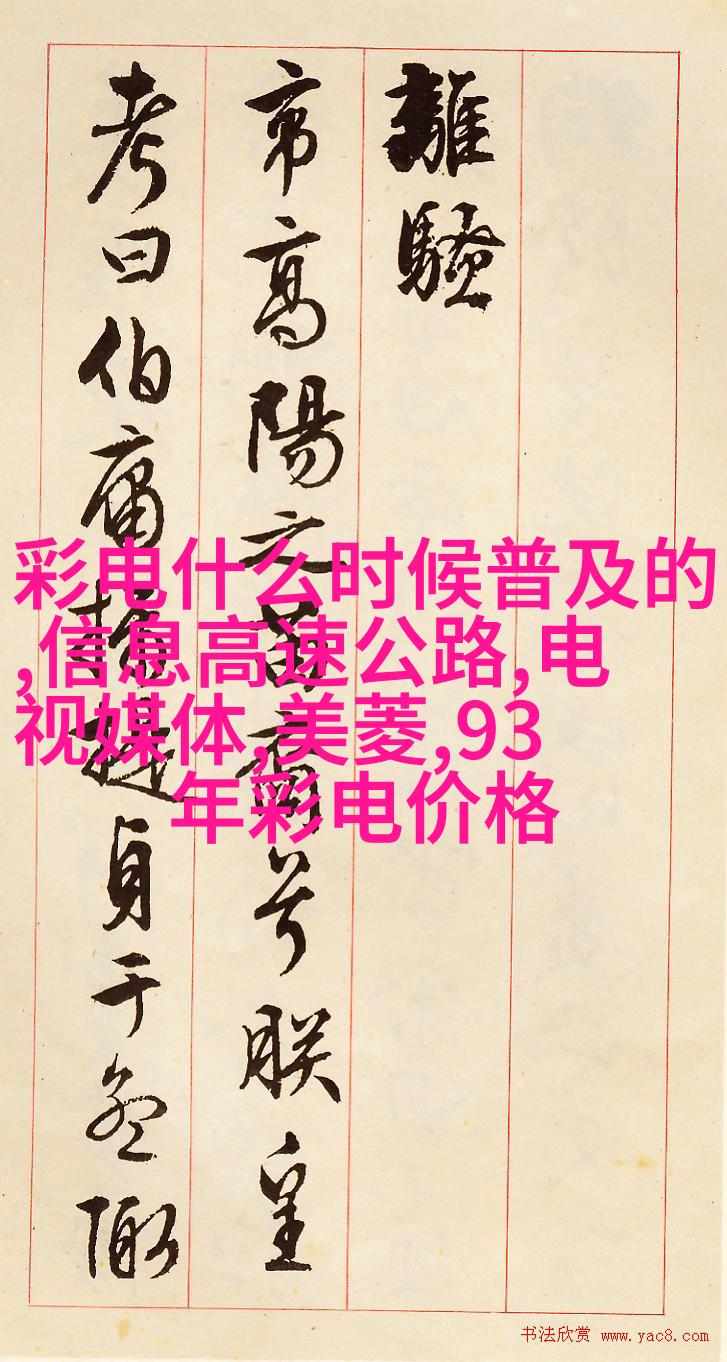 離騷
帝高陽之苗裔兮朕皇
考曰伯庸攝提貞于孟陬
彩电什么时候普及的
,信息高速公路,电
视媒体,美菱,93
年彩电价格
书法欣赏 www.yac8.com